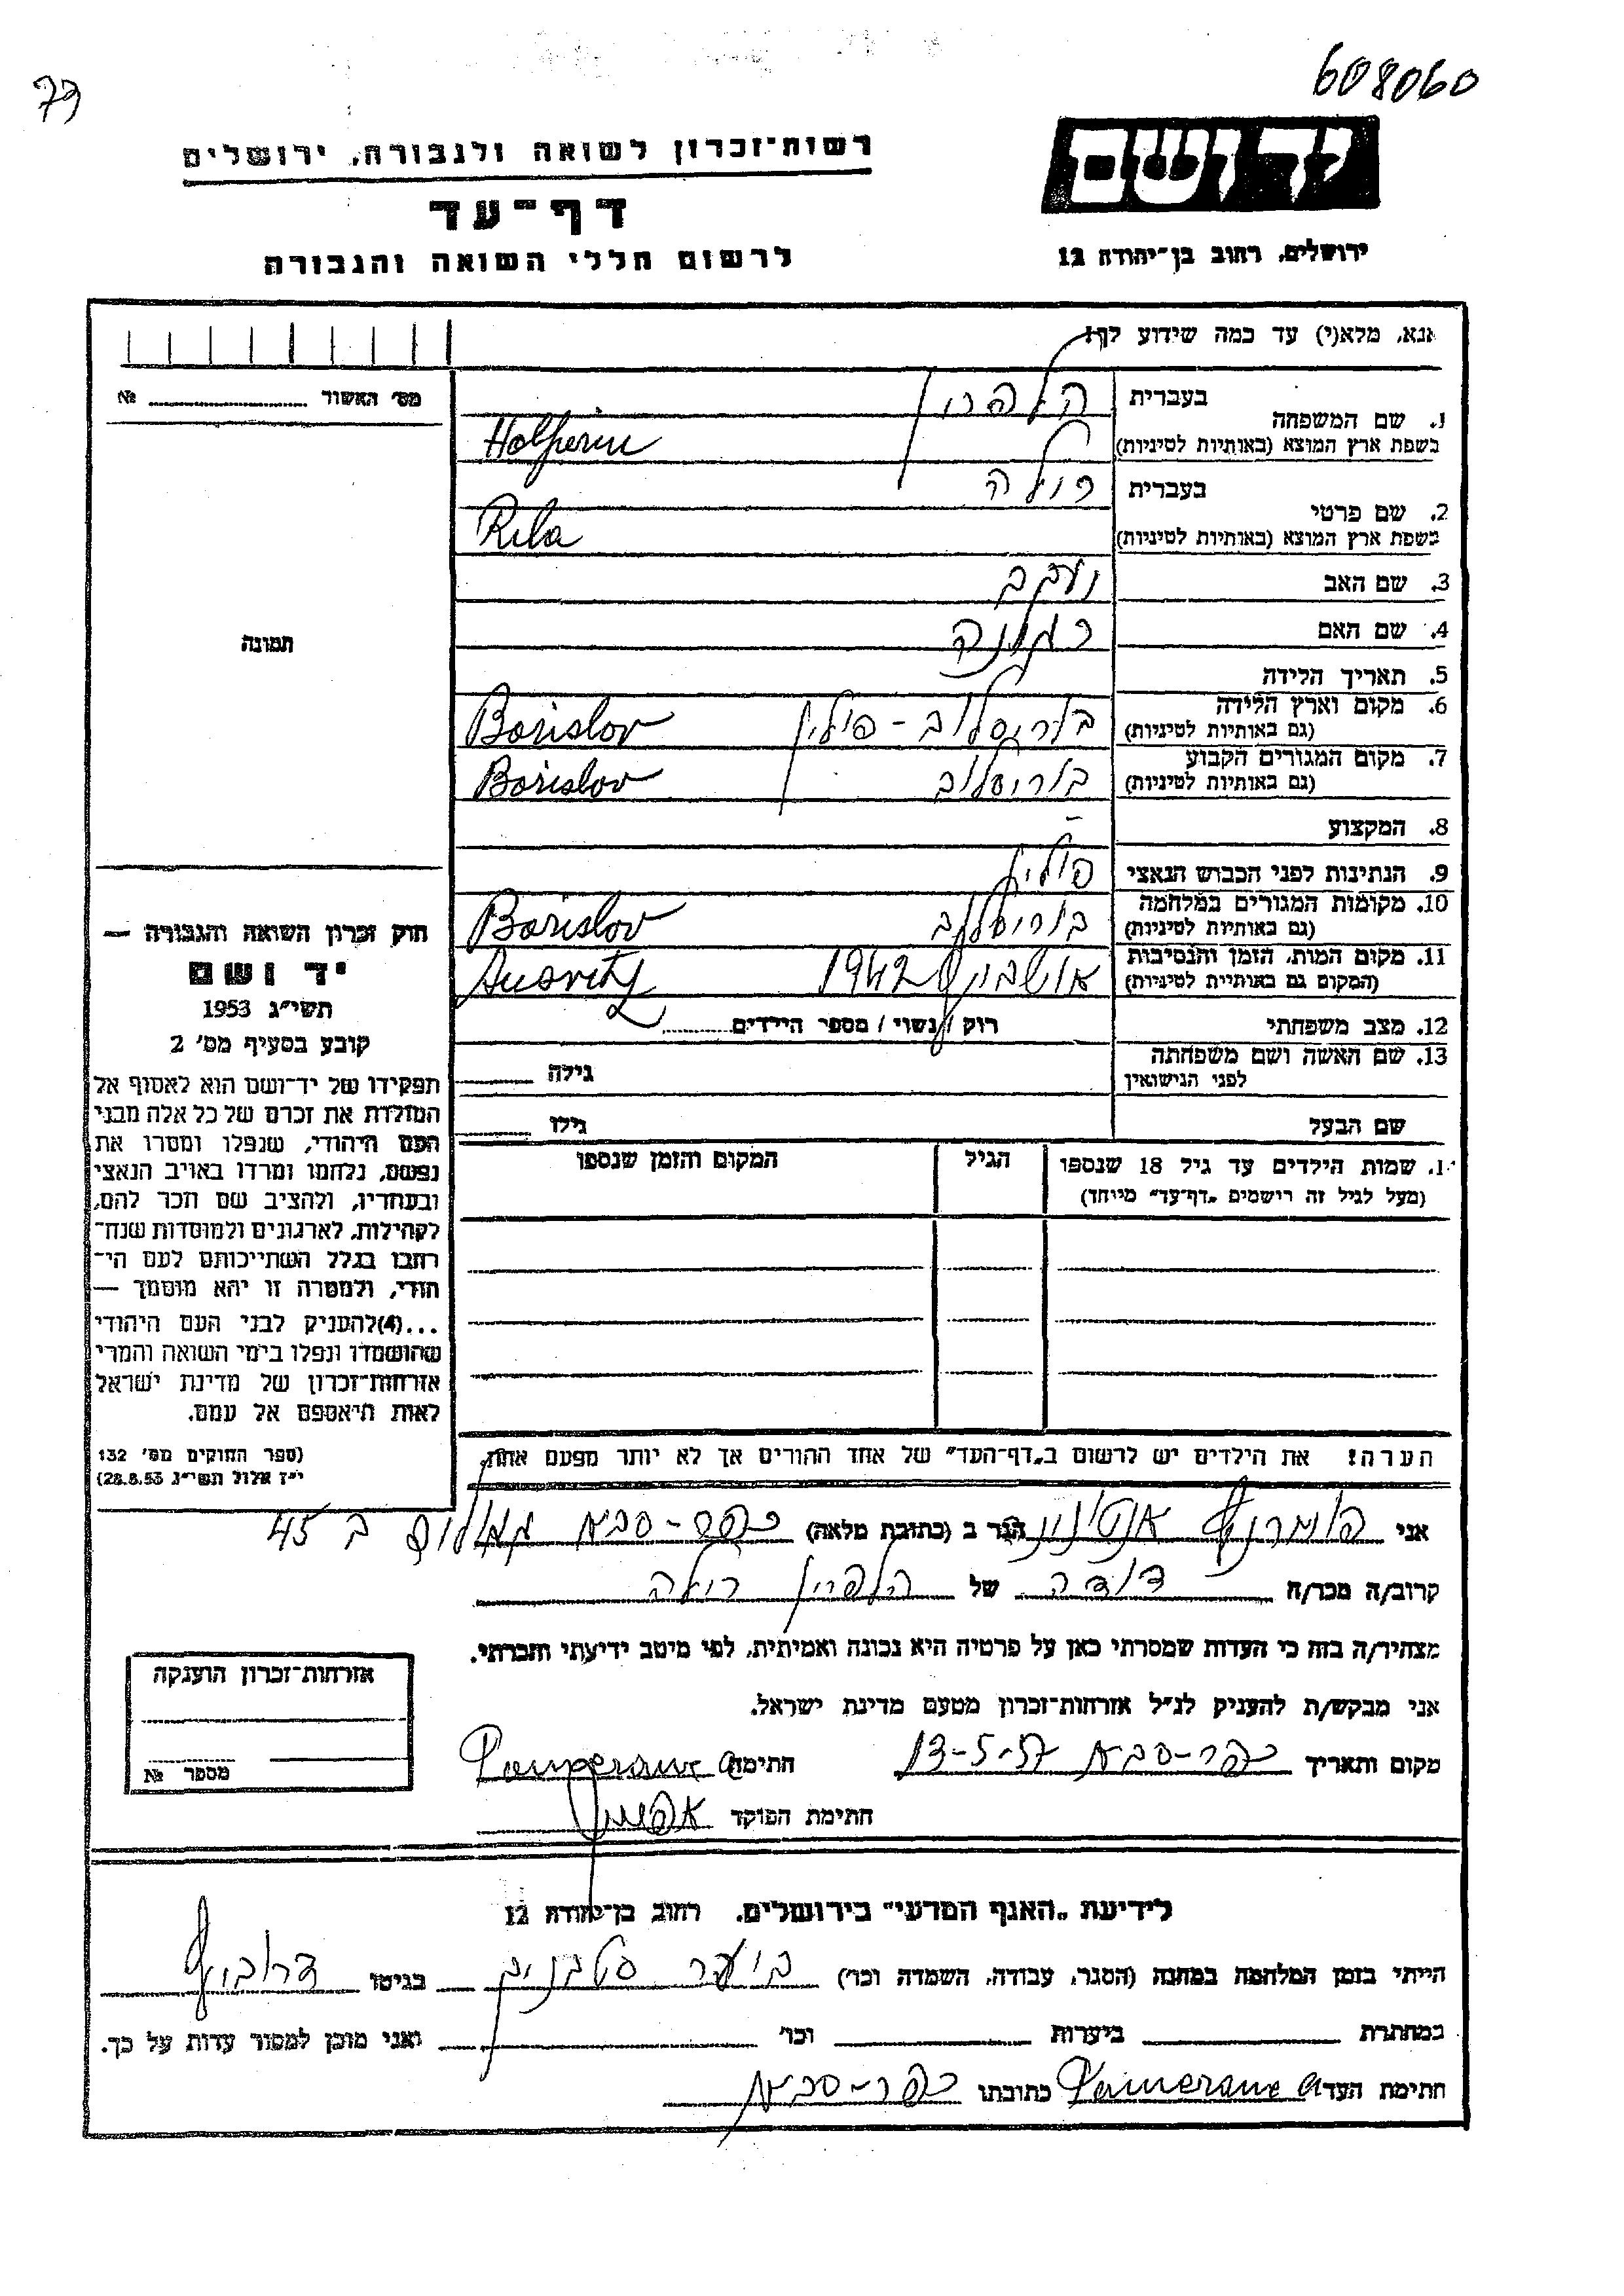 608060
79
יד ושם
רשות־זכרון לשואה ולגבורה, ירושלים
דף־עד
לרשום חללי השואה והגבורה
ירושלים, רחוב בן־יהודה 12
אנא, מלא(י) עד כמה שידוע לך!
מס' האשור № ........
1. שם המשפחה בעברית הלפרין
בשפת ארץ המוצא (באותיות לטיניות) Halperin
2. שם פרטי בעברית רולה
בשפת ארץ המוצא (באותיות לטיניות) Rula
3. שם האב יעקב
4. שם האם
5. תאריך הלידה
6. מקום וארץ הלידה (גם באותיות לטיניות) בוריסלוב - פולין Borislov
7. מקום המגורים הקבוע (גם באותיות לטיניות) בוריסלוב Borislov
8. המקצוע -
9. הנתינות לפני הכבוש הנאצי פולין
10. מקומות המגורים במלחמה (גם באותיות לטיניות) בוריסלוב Borislov
11. מקום המות, הזמן והנסיבות (המקום גם באותיית לטיניות) 1942 Ausvitz
12. מצב משפחתי רוק / נשוי / מספר הילדים........
13. שם האשה ושם משפחתה לפני הנישואין גילה
שם הבעל גילו
14. שמות הילדים עד גיל 18 שנספו הגיל המקום והזמן שנספו
(מעל לגיל זה רישמים „דף־עד" מייחד)
תמונה
חוק זכרון השואה והגבורה —
יד ושם
תשי"ג 1953
קובע בסעיף מס' 2
תפקידו של יד־ושם הוא לאסוף אל
המולדת את זכרם של כל אלה מבני
העם היהודי, שנפלו ומסרו את
נפשם, נלחמו ומרדו באויב הנאצי
ובעוזריו, ולהציב שם וזכר להם,
לקהילות, לארגונים ולמוסדות שנח־
רבו בגלל השתייכותם לעם הי־
הודי, ולמטרה זו יהא מוסמך —
...(4)להעניק לבני העם היהודי
שהושמדו ונפלו בימי השואה והמרי
אזרחות־זכרון של מדינת ישראל
לאות היאספם אל עמם.
(ספר החוקים מס' 132
י"ז אלול תשי"ג 28.8.53)
הערה! את הילדים יש לרשום ב„דף־העד" של אחד ההורים אך לא יותר מפעם אחת.
אני פומרנץ הגר ב (כתובת מלאה) כפר-סבא ב 45
קרוב/ה מכר/ה דודה של הלפרין רולה
מצהיר/ה בזה כי העדות שמסרתי כאן על פרטיה היא נכונה ואמיתית, לפי מיטב ידיעתי והכרתי.
אני מבקש/ת להעניק לנ"ל אזרחות־זכרון מטעם מדינת ישראל.
מקום ותאריך כפר-סבא 13-5-57 חתימה
חתימת הפוקד
אזרחות־זכרון הוענקה
מספר №
לידיעת „האגף המדעי" בירושלים, רחוב בן־יהודה 12
הייתי בזמן המלחמה במחנה (הסגר, עבודה, השמדה וכו') בגיטו
במחתרת ביערות וכו' ואני מוכן למסור עדות על כך.
חתימת העד כתובתו כפר-סבא